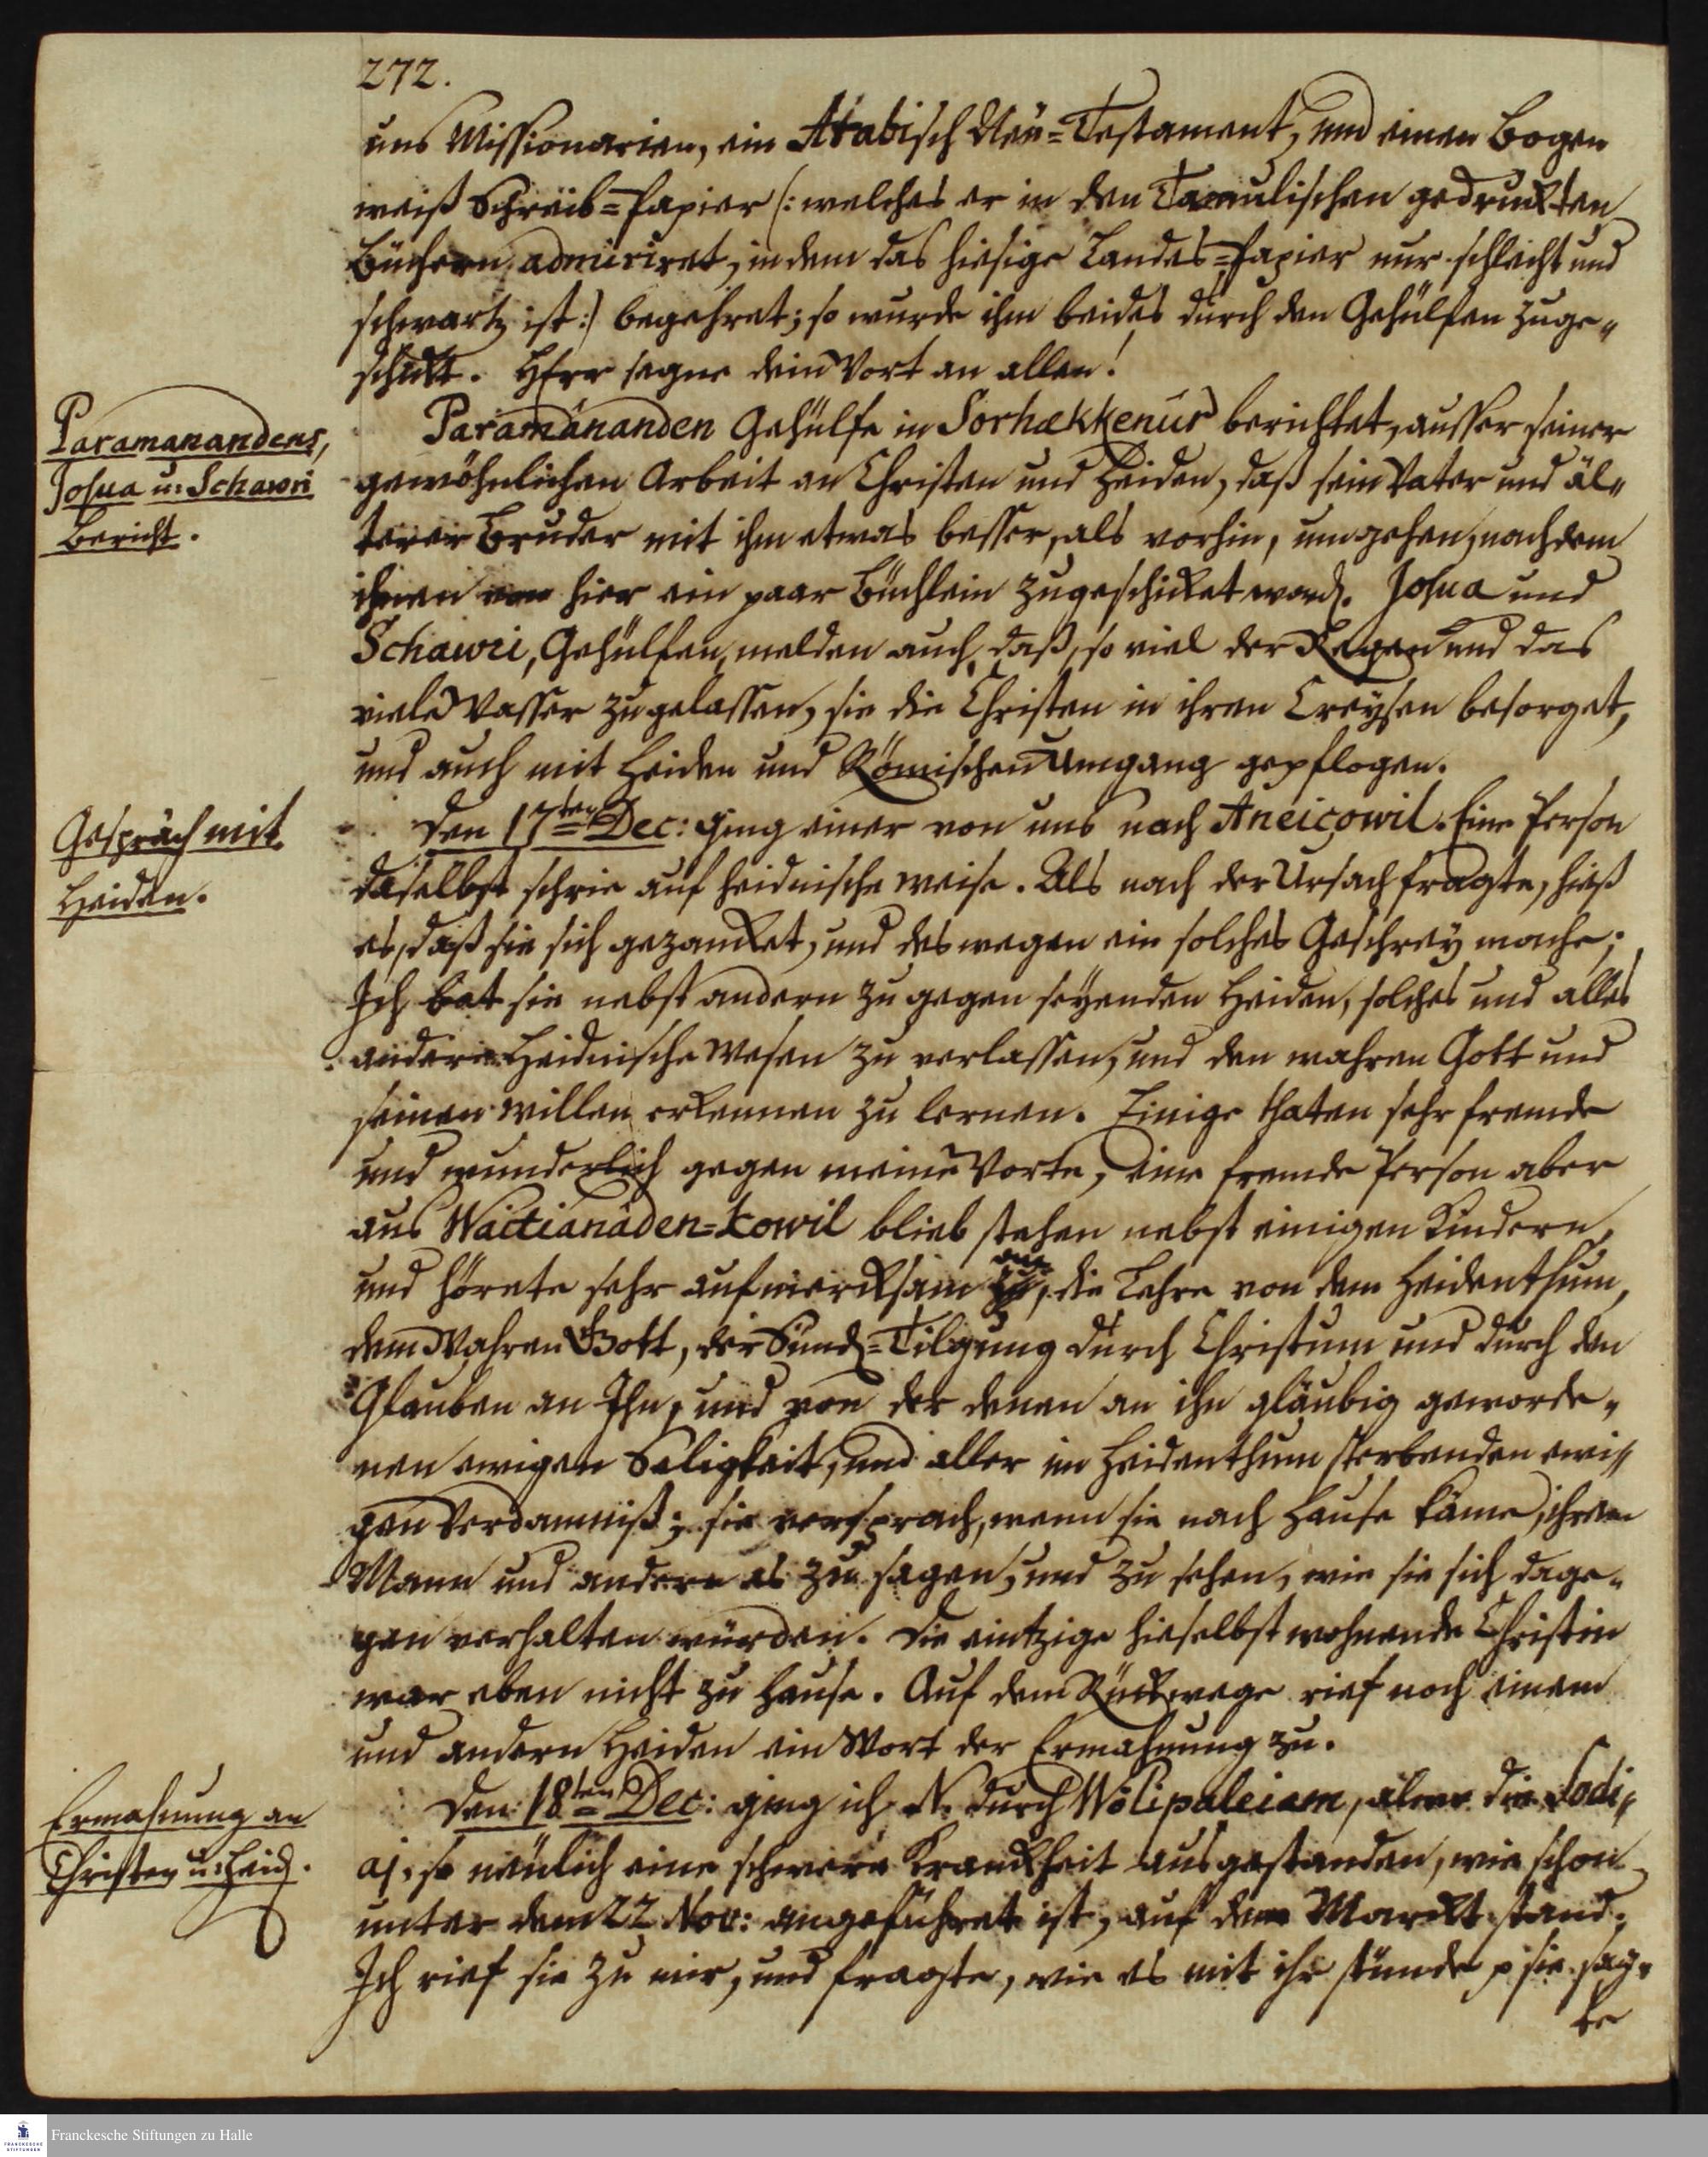 272.
uns Missionarien, ein Arabisch Neu=Testament, und einen Bogen
weiß Schreib=Papier (: welches er in den Tamulischen gedruckten
Büchern admiriret, indem das hiesige Landes=Papier nur schlecht und
schwartz ist :) begehret; so wurde ihm beides durch den Gehülfen zuge=
schickt. HErr segne dein Wort an allen!
Paramanandens,
Josua u: Schawri
Bericht.
Paramánanden Gehülfe in Sorhækkenúr berichtet, ausser seiner
gewöhnlichen Arbeit an Christen und Heiden, daß sein Vater und äl=
terer Bruder mit ihm etwas besser, als vorhin, umgehen, nachdem
ihnen von hier ein paar Büchlein zugeschicket word. Josua und
Schawri, Gehülfen, melden auch, daß, so viel der Regen und das
viele Wasser zugelassen, sie die Christen in ihren Creysen besorget,
und auch mit Heiden und Römischen Umgang gepflogen.
Gespräch mit
Heiden.
Den 17ten Dec: ging einer von uns nach Aneicowil. Eine Person
daselbst schrie auf heidnische weise. Als nach der Ursach fragte, hieß
es, daß sie sich gezancket, und deswegen ein solches Geschrey mache;
Ich bat sie nebst andern zugegen seyenden Heiden, solches und alles
andere Heidnische Wesen zu verlassen, und den wahren Gott und
seinen willen erkennen zu lernen. Einige thaten sehr fremde
und wunderlich gegen meine Worte, eine fremde Person aber
aus Waitianáden=kowil blieb stehen nebst einigen Kindern,
und hörete sehr aufmercksam an die Lehre von dem Heidenthum,
dem Wahren Gott, der Sünd=Tilgung durch Christum und durch den
Glauben an Ihn, und von der denen an ihn gläubig geworde=
nen ewigen Seligkeit, und aller im Heidenthum sterbenden ewi=
gen Verdamniß; sie versprach, wenn sie nach Hause käme, ihrem
Mann und andern es zu sagen, und zu sehen, wie sie sich dage=
gen verhalten würden. Die eintzige hieselbst wohnende Christin
war eben nicht zu Hause. Auf dem Rückwege rief noch einem
und andern Heiden ein Wort der Ermahnung zu.
Ermahnung an
Christen u: Heid.
Den 18ten Dec: ging ich N. durch Wölipaleiam, alwo die Sodi=
aj, so neulich eine schwere Kranckheit ausgestanden, wie schon
unter dem 22 Nov: angeführet ist, auf dem Marckt stand;
Ich rief sie zu mir, und fragte, wie es mit ihr stünde p sie sag=
te
Franckesche Stiftungen zu Halle